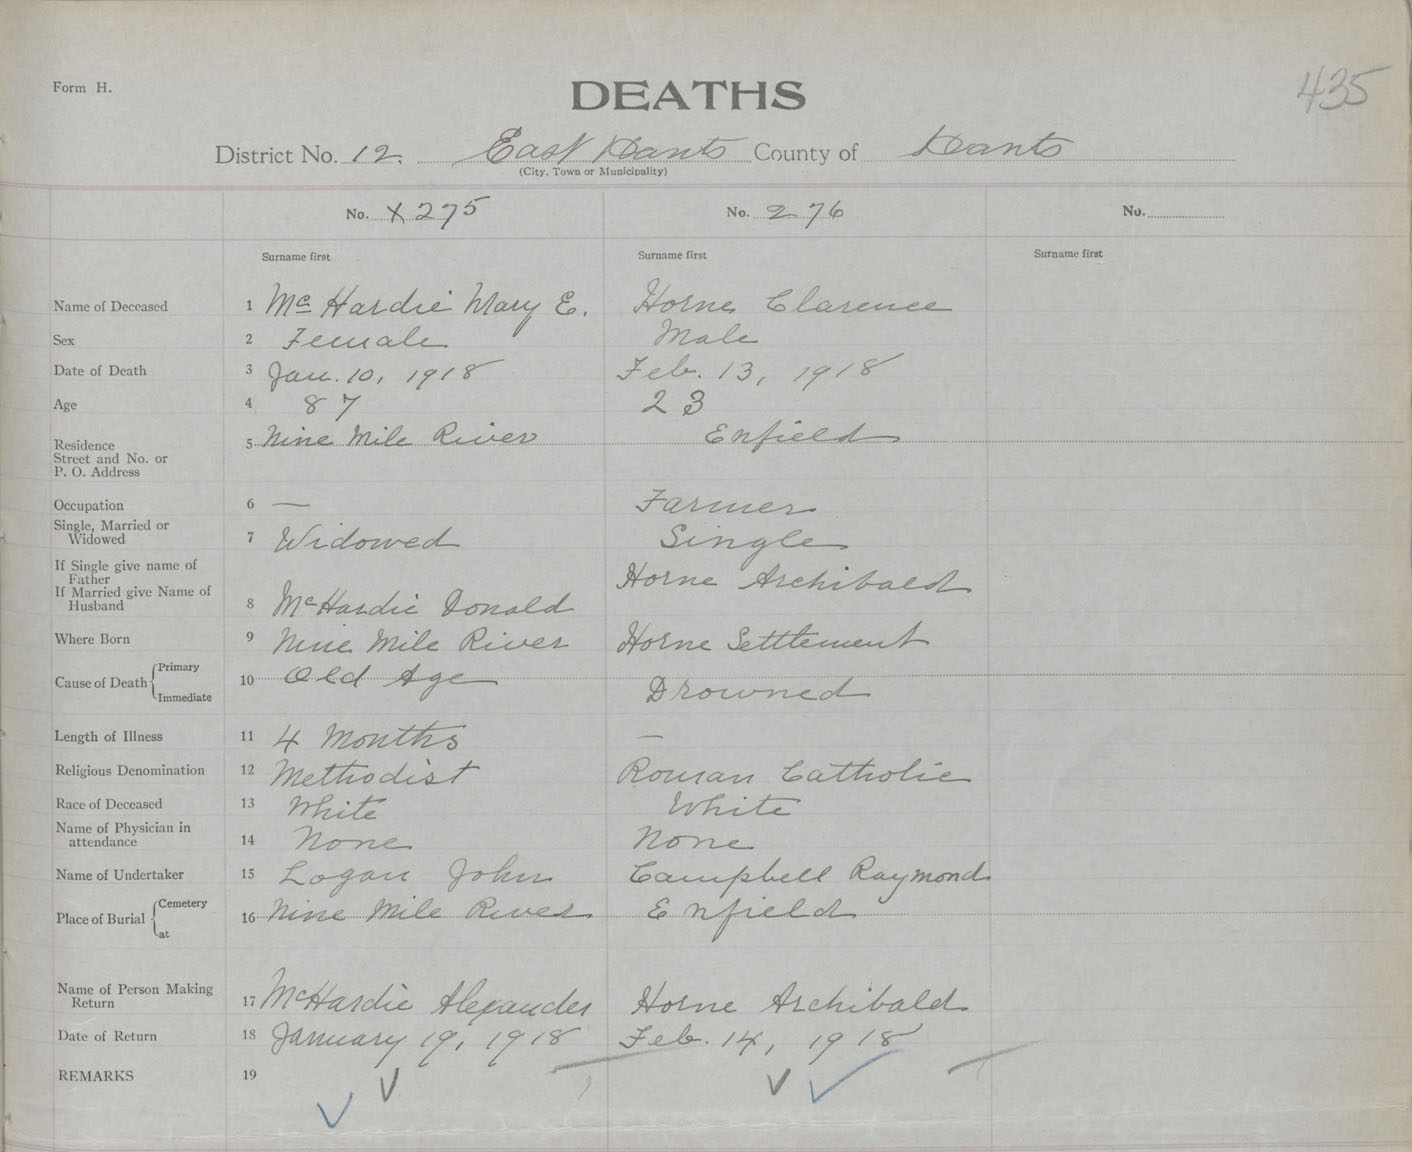 Form H.
DEATHS
435
District No. 12. East Hants County of Hants
(City, Town or Municipality)
No. X 275 No. 276 No.
Surname first Surname first Surname first
Name of Deceased 1 McHardie Mary E. Horne, Clarence
Sex 2 Female Male
Date of Death 3 Jan. 10, 1918 Feb. 13, 1918
Age 4 87 23
Residence
Street and No. or
P. O. Address 5 Nine Mile River Enfield
Occupation 6 — Farmer
Single, Married or
Widowed 7 Widowed Single
If Single give name of
Father
If Married give Name of
Husband 8 McHardie Donald Horne Archibald
Where Born 9 Nine Mile River Horne Settlement
Cause of Death { Primary
Immediate 10 Old Age Drowned
Length of Illness 11 4 Months —
Religious Denomination 12 Methodist Roman Catholic
Race of Deceased 13 White White
Name of Physician in
attendance 14 None None
Name of Undertaker 15 Logan John Campbell Raymond
Place of Burial { Cemetery
at 16 Nine Mile River Enfield
Name of Person Making
Return 17 McHardie Alexander Horne Archibald
Date of Return 18 January 19, 1918 Feb. 14, 1918
REMARKS 19